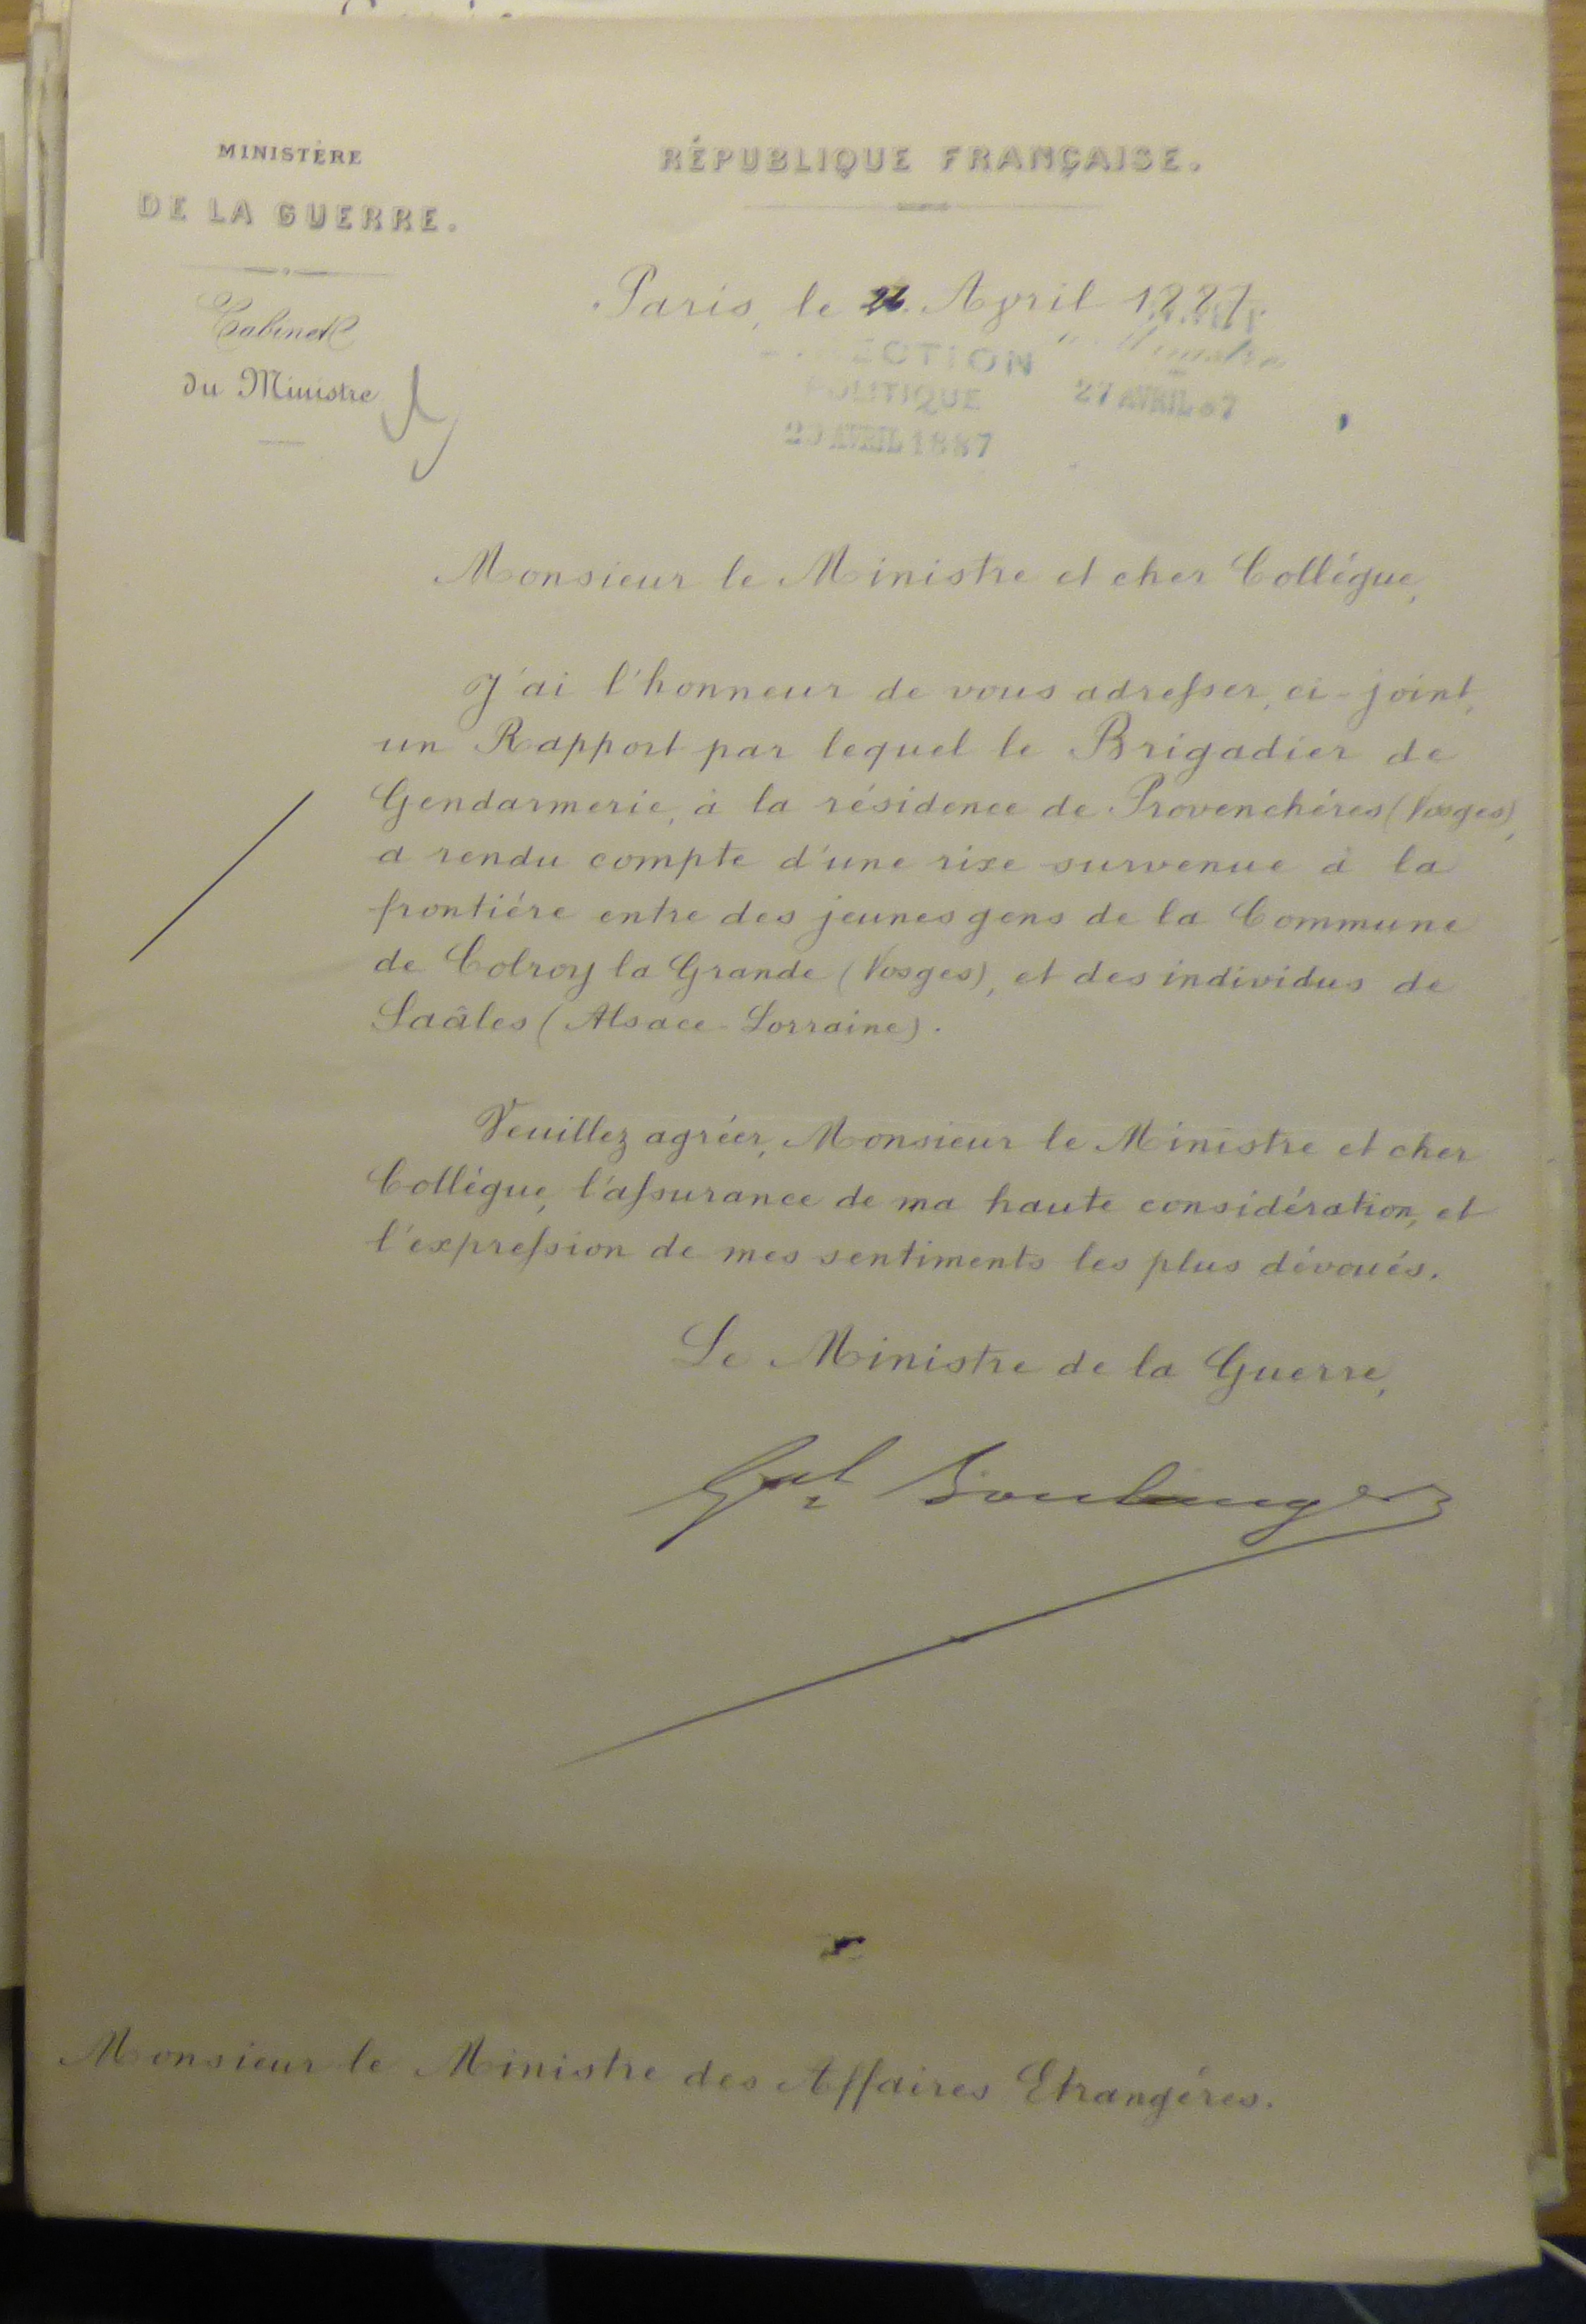 MINISTÈRE
DE LA GUERRE.
Cabinet
du Ministre
RÉPUBLIQUE FRANÇAISE.
Paris, le Avril 1887.
POLITIQUE
27 AVRIL 87
AVRIL 1887
Monsieur le Ministre et cher Collégue,
J'ai l'honneur de vous adresser, ci-joint,
un Rapport par lequel le Brigadier de
Gendarmerie, à la résidence de Provenchéres (Vosges),
a rendu compte d'une rixe survenue à la
frontiére entre des jeunes gens de la Commune
de Colroy la Grande (Vosges), et des individus de
Saâles (Alsace-Lorraine).
Veuillez agréer, Monsieur le Ministre et cher
Collégue, l'assurance de ma haute considération, et
l'expression de mes sentiments les plus dévoués.
Le Ministre de la Guerre,
Gal Boulanger
Monsieur le Ministre des Affaires Etrangéres.